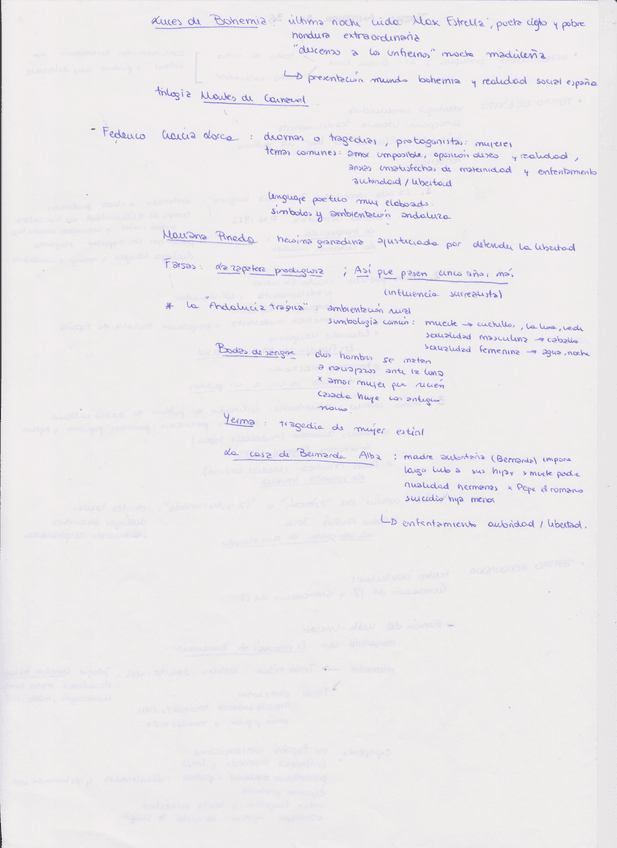 Luces de Bohemia : última noche vida Max Estrella, poeta ciego y pobre
hondura extraordinaria
"descenso a los infiernos" noche madrileña
↳ presentación mundo bohemia y realidad social española
trilogía Martes de Carnaval
- Federico García Lorca : dramas o tragedias, protagonistas: mujeres
temas comunes: amor imposible, oposición deseo y realidad,
ansias insatisfechas de maternidad y enfrentamiento
autoridad / libertad
lenguaje poético muy elaborado
símbolos y ambientación andaluza
Mariana Pineda : heroína granadina ajusticiada por defender la libertad
Farsas : La zapatera prodigiosa ; Así que pasen cinco años, más
(influencia surrealista)
* La "Andalucía trágica" : ambientación rural
simbología común : muerte → cuchillos, la luna, verde
sexualidad masculina → caballo
sexualidad femenina → agua, noche
Bodas de sangre : dos hombres se matan
a navajazos ante la luna
x amor mujer que recién
casada huye con antiguo
novio
Yerma : tragedia de mujer estéril
La casa de Bernarda Alba : madre autoritaria (Bernarda) impone
largo luto a sus hijas x muerte padre
rivalidad hermanas x Pepe el romano
suicidio hija menor
↳ enfrentamiento autoridad / libertad.